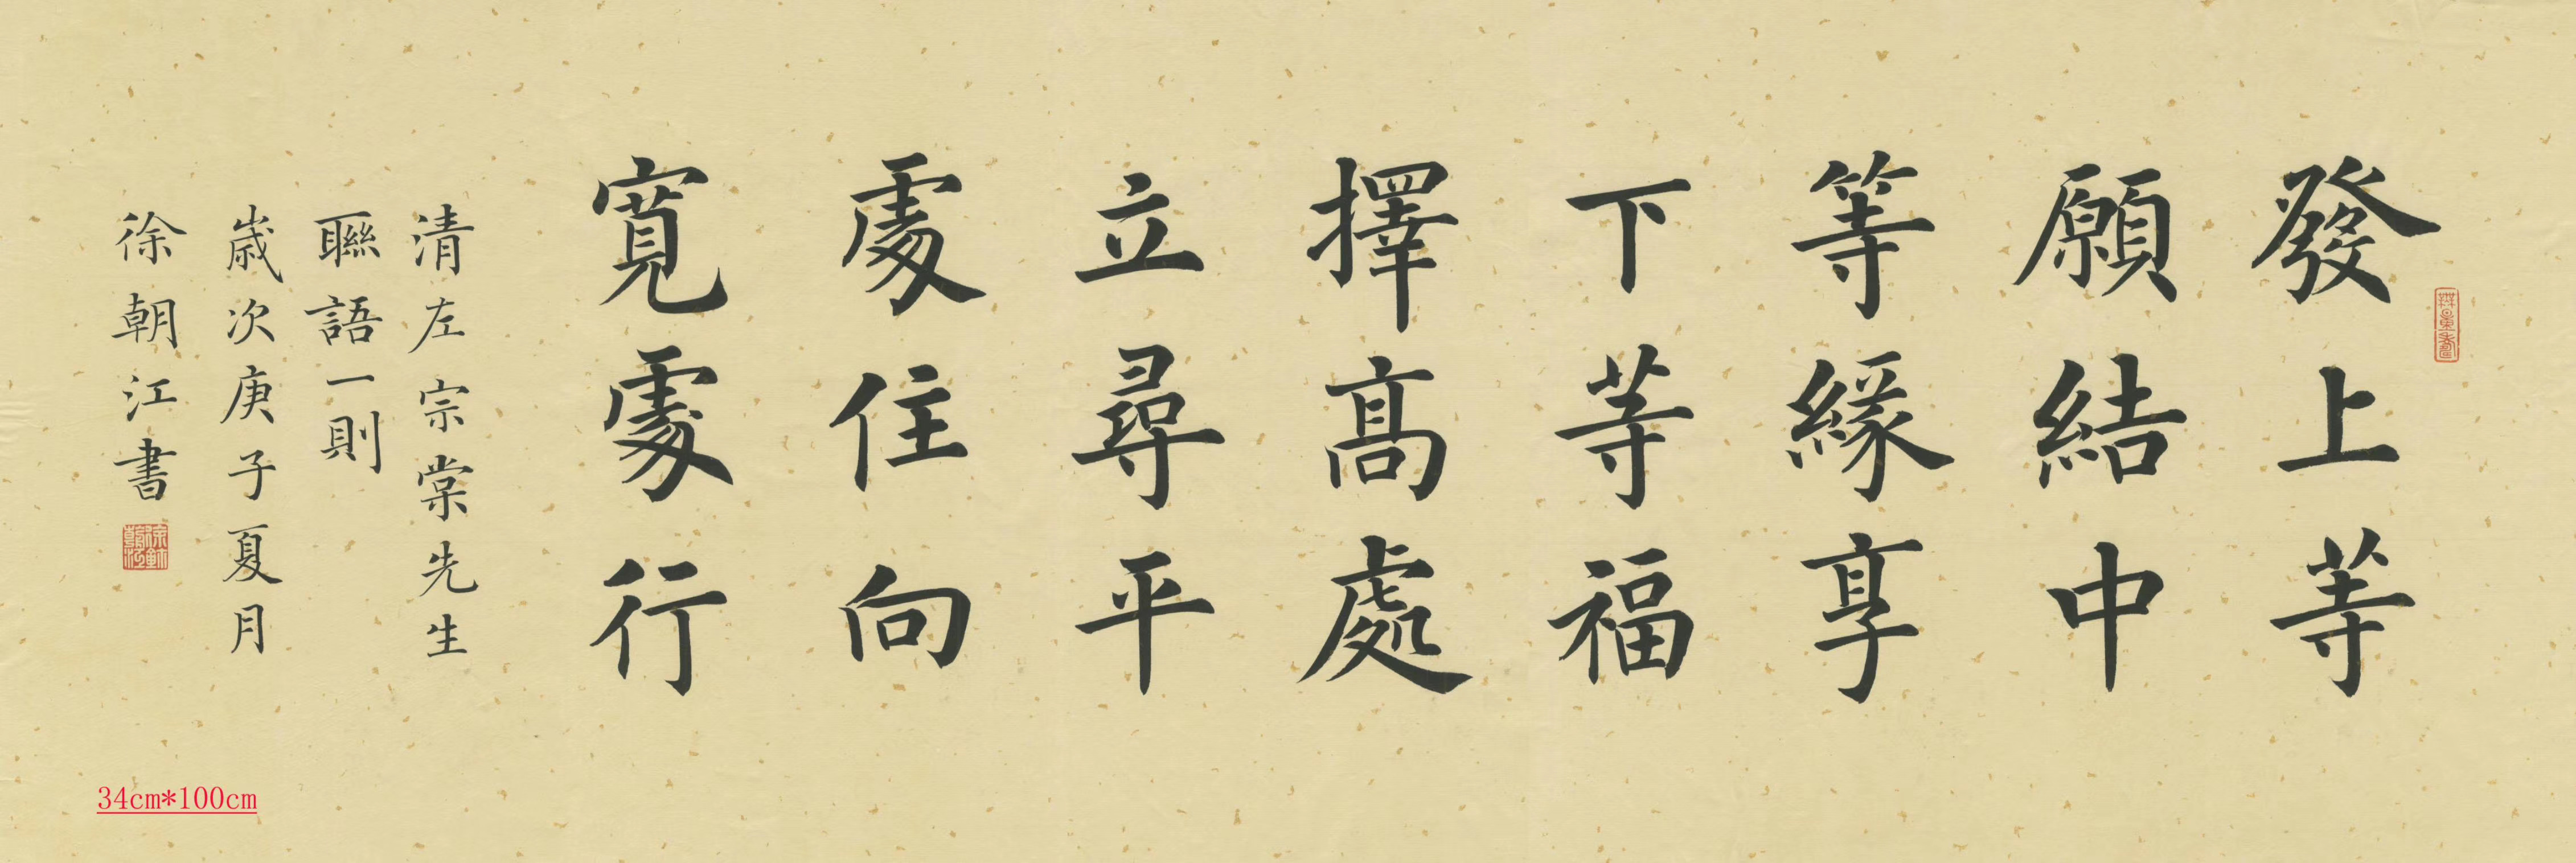 發上等
願結中
等緣享
下等福
擇高處
立尋平
處住向
寬處行
清左宗棠先生
聯語一則
歲次庚子夏月
徐朝江書
34cm*100cm